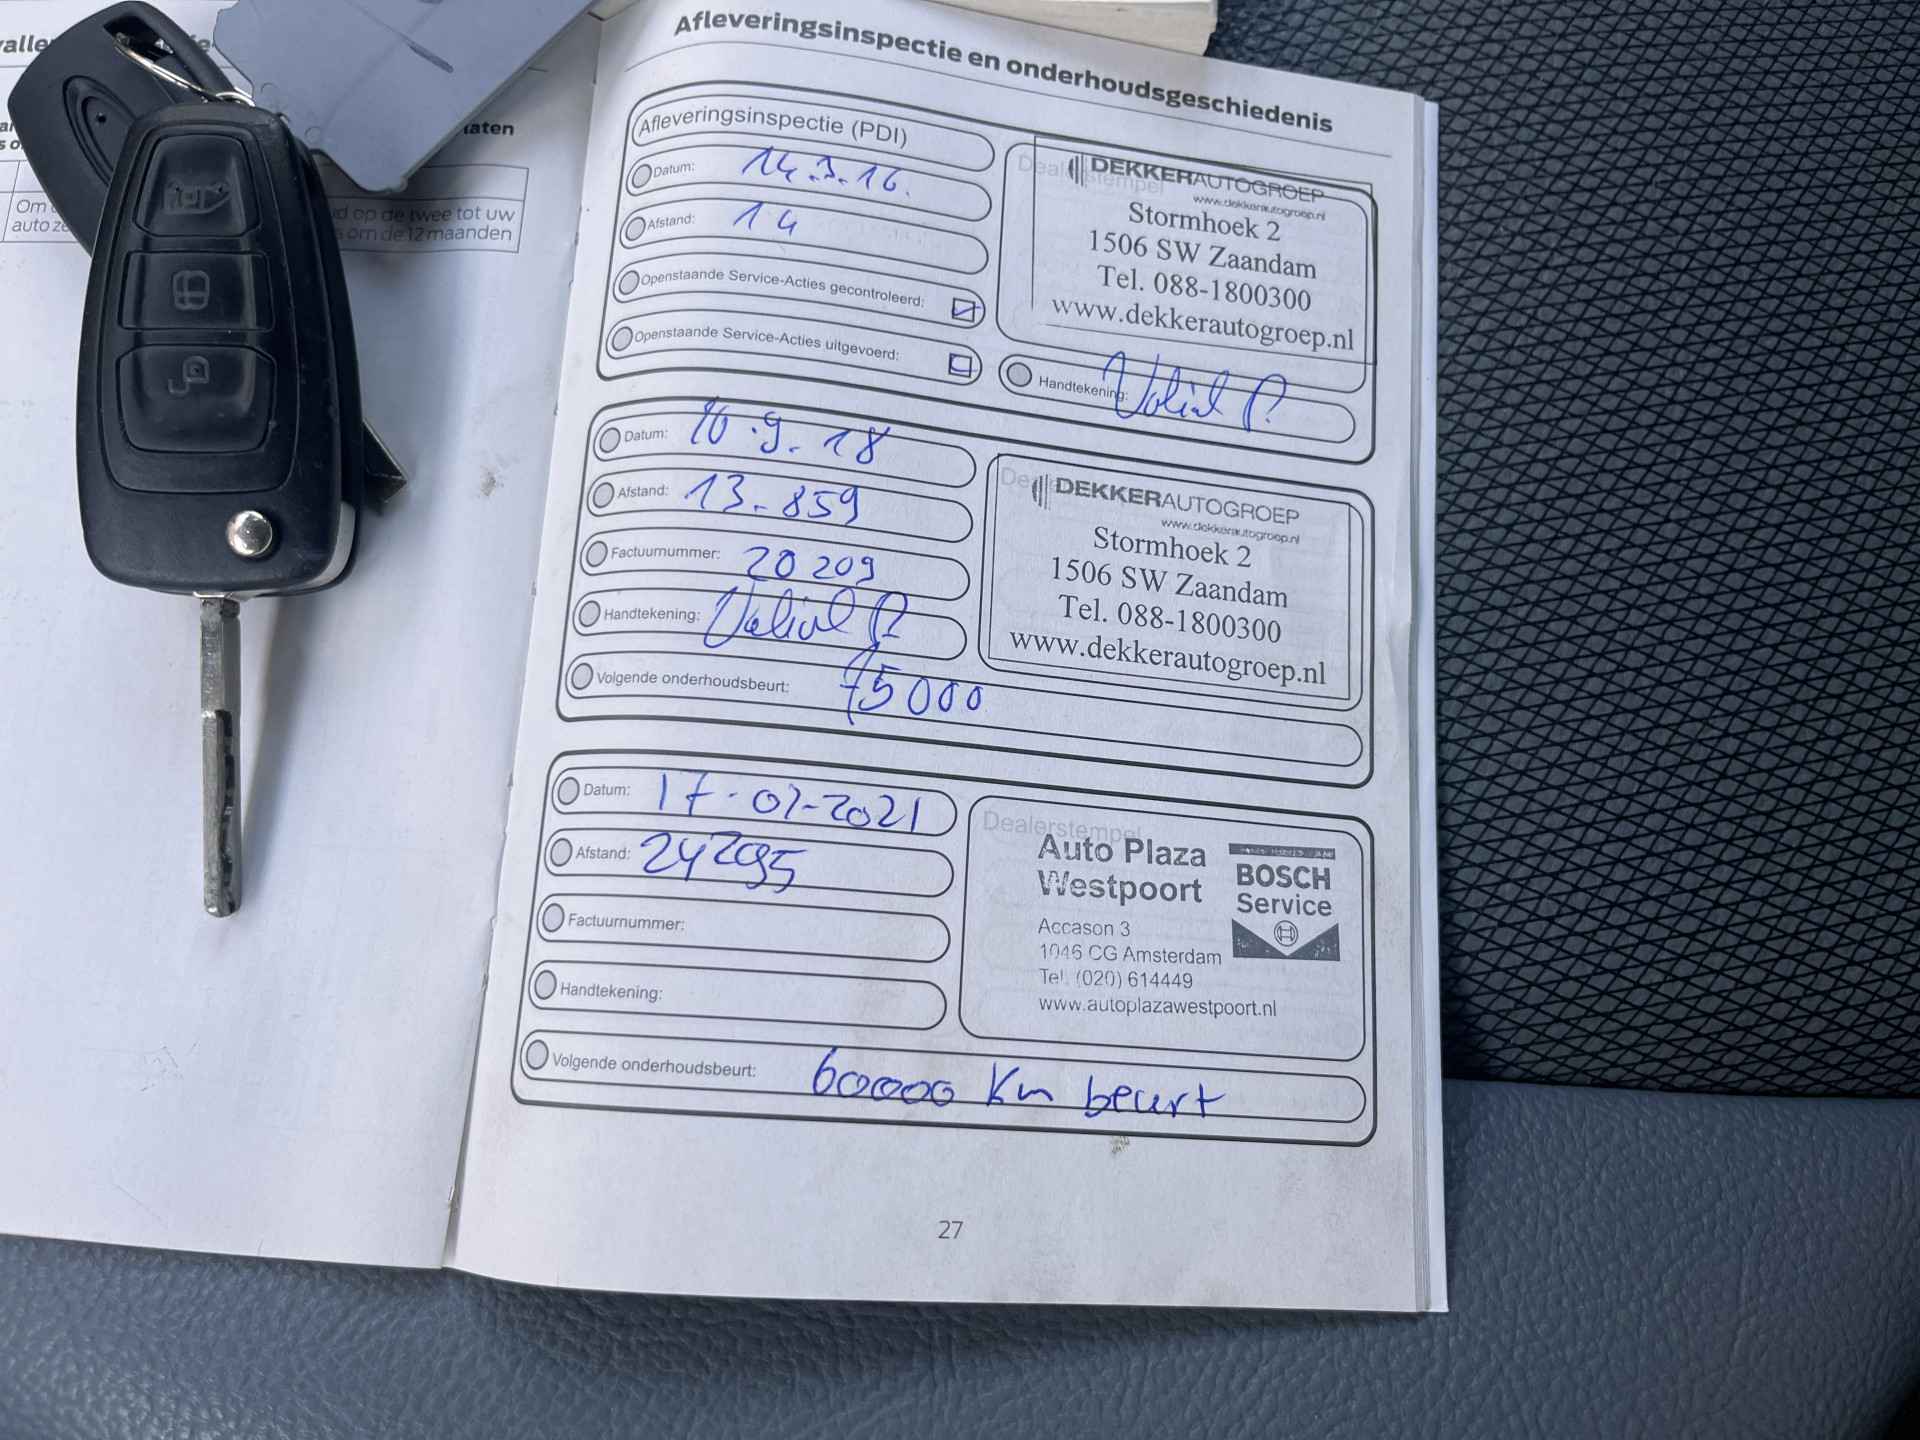 Afleveringsinspectie en onderhoudsgeschiedenis
Afleveringsinspectie (PDI)
Datum: 14.3.16.
Afstand: 14
Openstaande Service-Acties gecontroleerd:
Openstaande Service-Acties uitgevoerd:
DEKKERAUTOGROEP
www.dekkerautogroep.nl
Stormhoek 2
1506 SW Zaandam
Tel. 088-1800300
www.dekkerautogroep.nl
Handtekening:
Datum: 10.9.18
Afstand: 13.859
Factuurnummer: 20209
Handtekening:
Volgende onderhoudsbeurt: 75000
DEKKERAUTOGROEP
www.dekkerautogroep.nl
Stormhoek 2
1506 SW Zaandam
Tel. 088-1800300
www.dekkerautogroep.nl
Datum: 17-02-2021
Afstand: 24295
Factuurnummer:
Handtekening:
Volgende onderhoudsbeurt: 60000 Km beurt
Dealerstempel
Auto Plaza
Westpoort
BOSCH
Service
Accason 3
1046 CG Amsterdam
Tel. (020) 614449
www.autoplazawestpoort.nl
27
laten
op de twee tot uw
om de 12 maanden
Om
auto